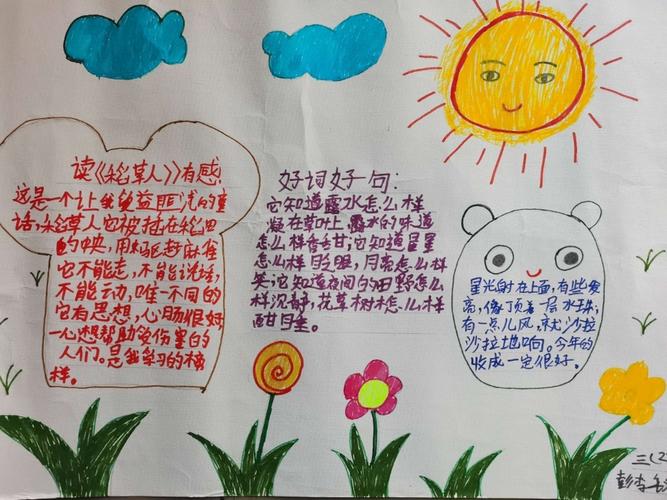 读《稻草人》有感
这是一个让我受益匪浅的童
话,稻草人它被插在稻田
的中央,用来驱赶麻雀
它不能走,不能说话,
不能动,唯一不同的
它有思想,心肠很好
一心想帮助受伤害的
人们。是我学习的榜
样。
好词好句:
它知道露水怎么样
凝在草叶上,露水的味道
怎么样香甜;它知道星星
怎么样眨眼,月亮怎么样
笑;它知道夜间的田野怎么
样沉静,花草树木怎么样
酣睡。
星光射在上面,有些发
亮,像顶着一层水珠;
有一点儿风,就沙拉
沙拉地响。今年的
收成一定很好。
三(2
彭李